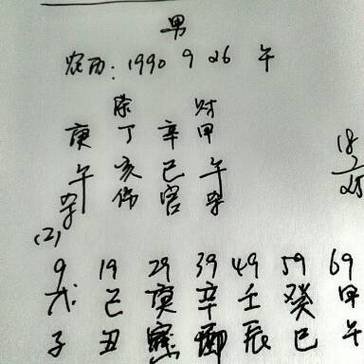 男
农历：1990 9 26 午
杀 财
庚 丁 辛 甲
午 亥 巳 午
官
(2)
18
25
9 19 29 39 49 59 69
戊 己 庚 辛 壬 癸 甲
子 丑 寅 卯 辰 巳 午